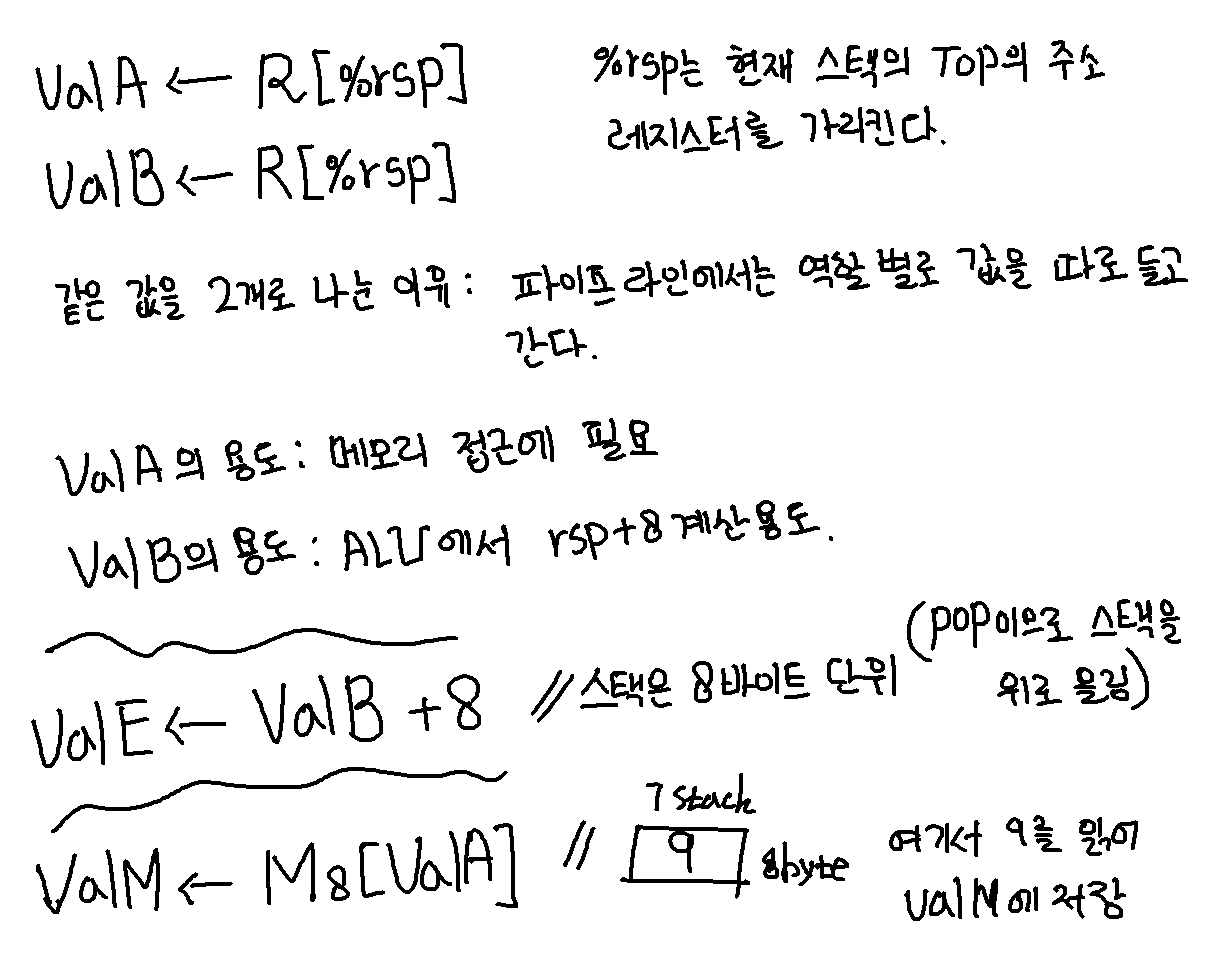 ValA ← R[%rsp]
%rsp는 현재 스택의 Top의 주소
레지스터를 가리킨다.
ValB ← R[%rsp]
같은 값을 2개로 나눈 이유 : 파이프라인에서는 역할 별로 값을 따로 들고
간다.
ValA의 용도 : 메모리 접근에 필요
ValB의 용도 : ALU에서 rsp+8 계산용도.
ValE ← ValB + 8 // 스택은 8바이트 단위
(pop이므로 스택을
위로 올림)
ValM ← M8[ValA] //
7 stack
9
8byte
여기서 9를 읽어
valM에 저장